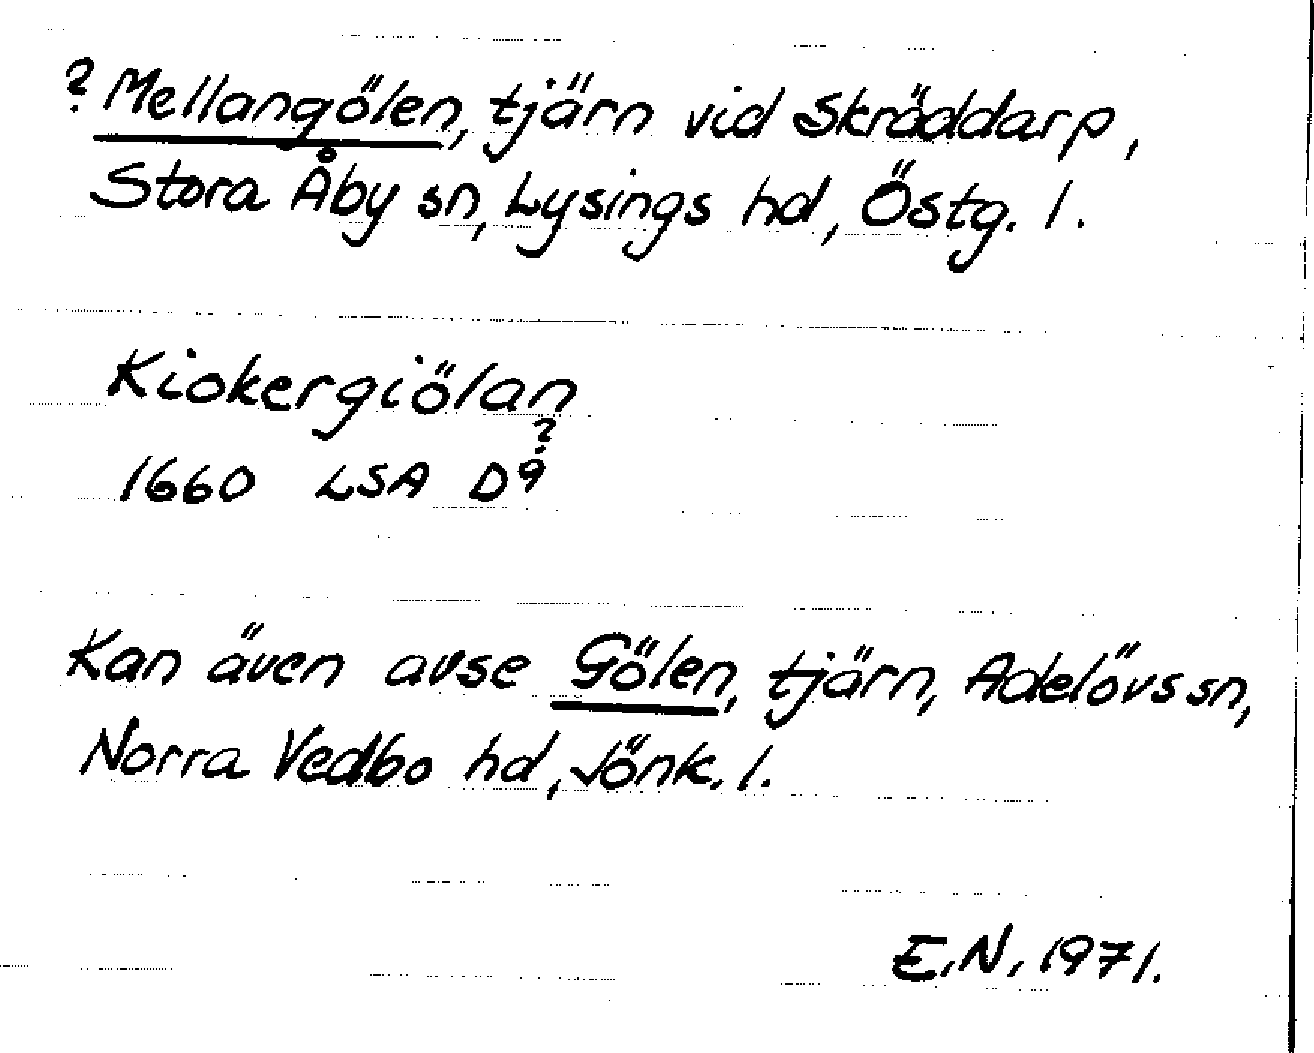 ? Mellangölen, tjärn vid Skräddarp,
Stora Åby sn, Lysings hd, Östg. l.
Kiokergiölan
1660 LSA D9?
Kan även avse Gölen, tjärn, Adelövs sn,
Norra Vedbo hd, Jönk. l.
E.N. 1971.